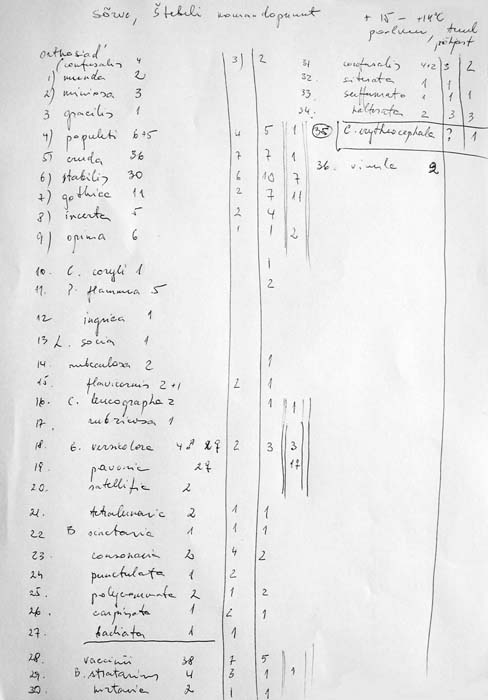 Sõrve, Stebeli komandopunkt
+15 - +14°C
tuul
orthosiad
(confusalis 4 3) 2
1) munda 2
2) miniosa 3
3 gracilis 1
4) populeti 6+5 4 5 1
5) cruda 36 7 7 1
6) stabilis 30 6 10 7
7) gothica 11 2 7 11
8) incerta 5 2 4
9) opima 6 1 1 2
10. C. coryli 1 1
11. P. flammea 5 2
12 ingrica 1
13 L. socia 1
14. nubeculosa 2 1
15. flavicornis 2+1 2 1
16. C. leucographa 2 1 1
17. rubricosa 1
18. E. versicolora 4♂ 2♀ 2 3 3
19. pavonia 2♀ 17
20. satellitia 2
21. tetralunaria 2 1 1
22 B sociaria 1 1 1
23. consonaria 2 4 2
24 punctulata 1 2
25. polycommata 2 1 2
26. carpinata 1 2 1
27. badiata 1 1
28. vaccinii 38 7 5
29. B. stratarius 4 3 1 1
30 hirtaria 2 1 1
31 confusalis 4+2 3 2
32. siterata 1 1
33. suffumata 1 1 1
34. 2 3 3
35 C. erythrocephala ? 1
36. vinula 2